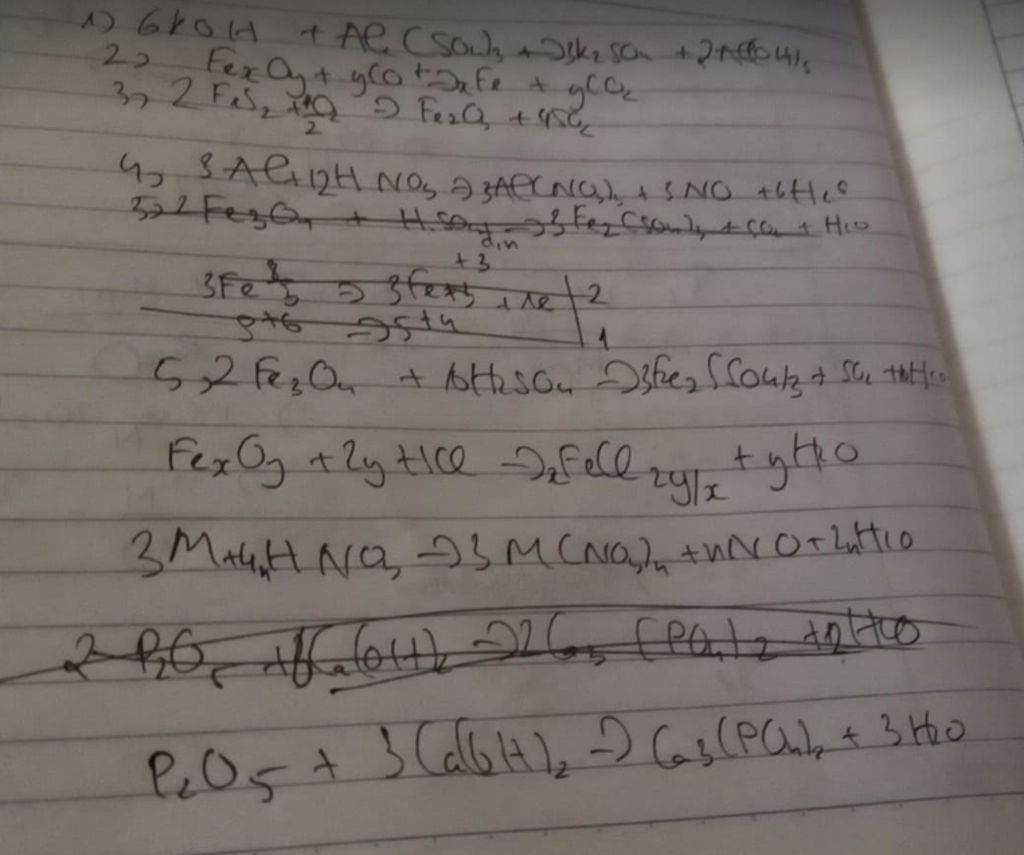 1) 6KOH + Al2(SO4)3 → 3K2SO4 + 2Al(OH)3
2) FexOy + yCO → xFe + yCO2
3) 2FeS2 + 11/2 O2 ⇒ Fe2O3 + 4SO2
4) 3Al + 12HNO3 ⇒ 3Al(NO3)3 + 3NO + 6H2O
2Fe3O4 + H2SO4 → 3Fe2(SO4)3 + SO2 + H2O
+3
3Fe 8/3 ⇒ 3Fe+3 + 1e | 2
S+6 ⇒ S+4 | 1
5) 2Fe3O4 + 10H2SO4 → 3Fe2(SO4)3 + SO2 + 10H2O
FexOy + 2yHCl → xFeCl2y/x + yH2O
3M + 4nHNO3 → 3M(NO3)n + nNO + 2nH2O
2P2O5 + 6Ca(OH)2 → 2Ca3(PO4)2 + H2O
P2O5 + 3Ca(OH)2 → Ca3(PO4)2 + 3H2O